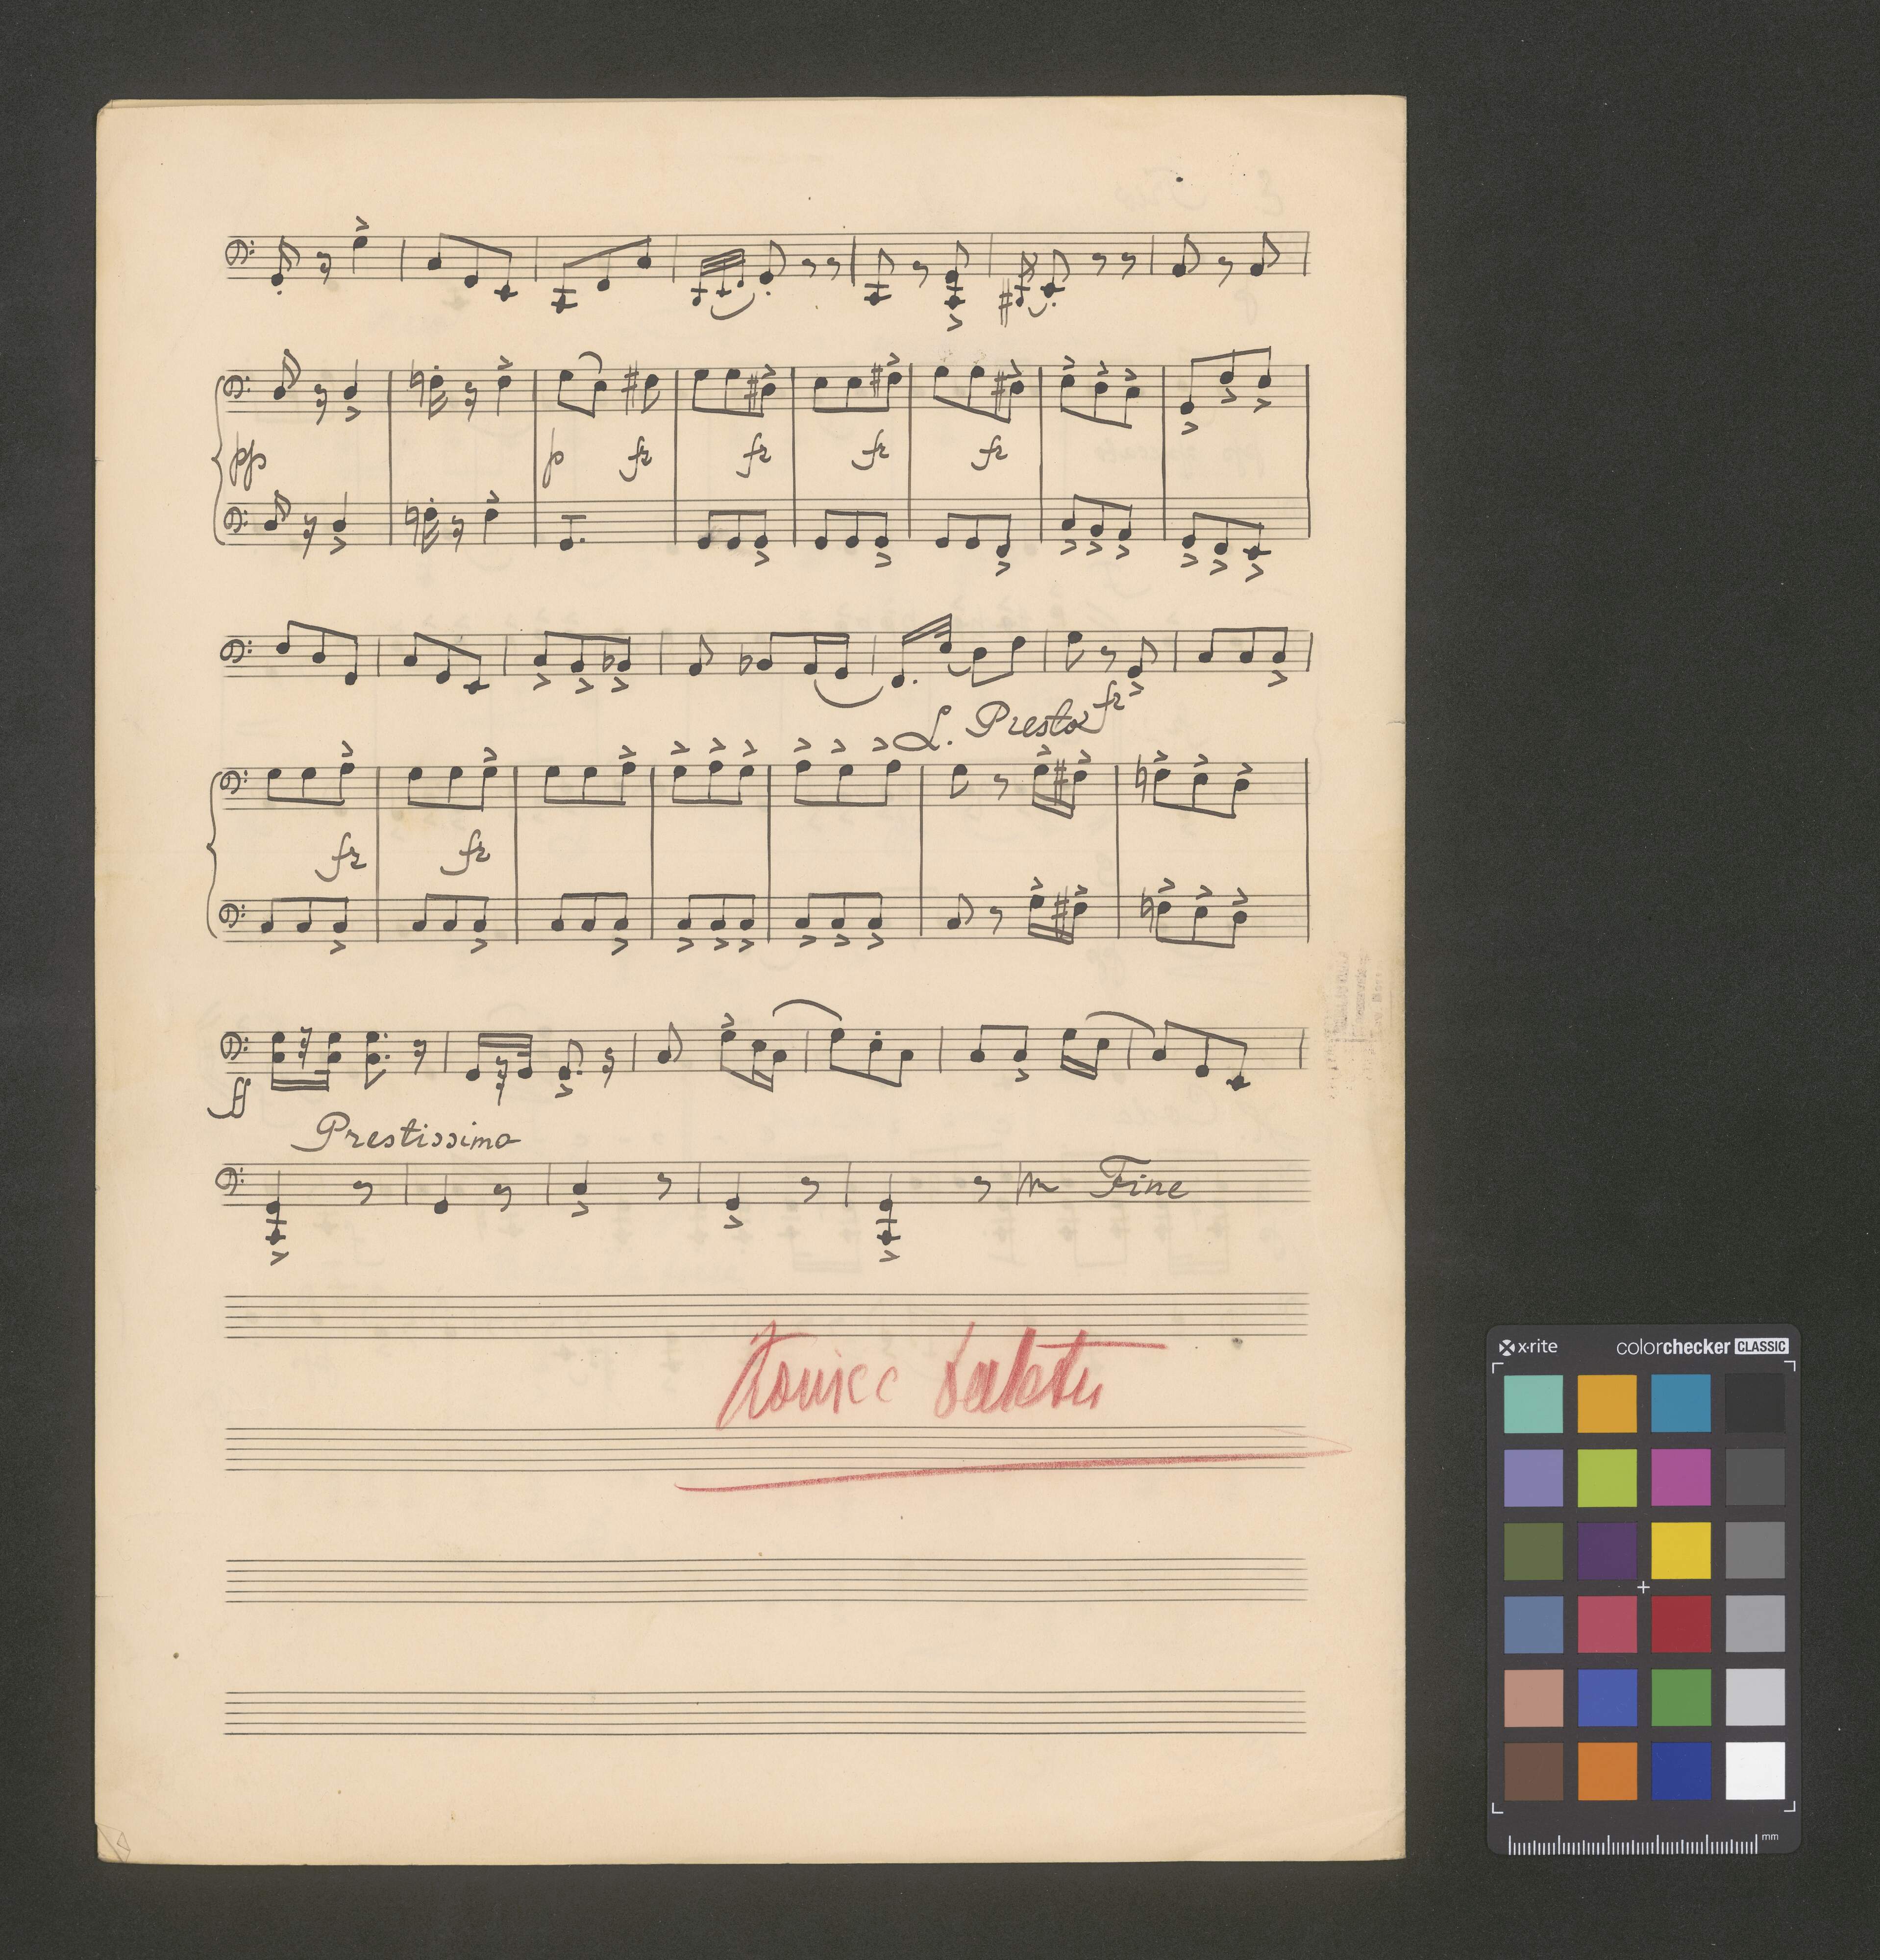 pp
p fz fz fz fz
fz
L. Presto
fz fz
ff
Prestissimo
Fine
Koniec baletu
x-rite colorchecker CLASSIC
mm